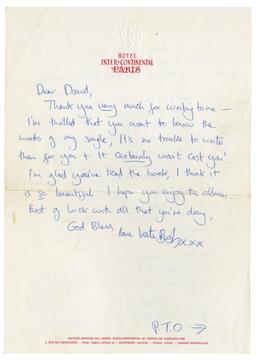 HOTEL
INTER·CONTINENTAL
PARIS
Dear David,
Thank you very much for writing to me —
I'm thrilled that you want to know the
words of my single, It's no trouble to write
them for you + It certainly won't cost you!
I'm glad you've read the book, I think it
is so beautiful. I hope you enjoy the album
Best of luck with all that you're doing,
God Bless,
love Kate Bush xxx
P.T.O. →